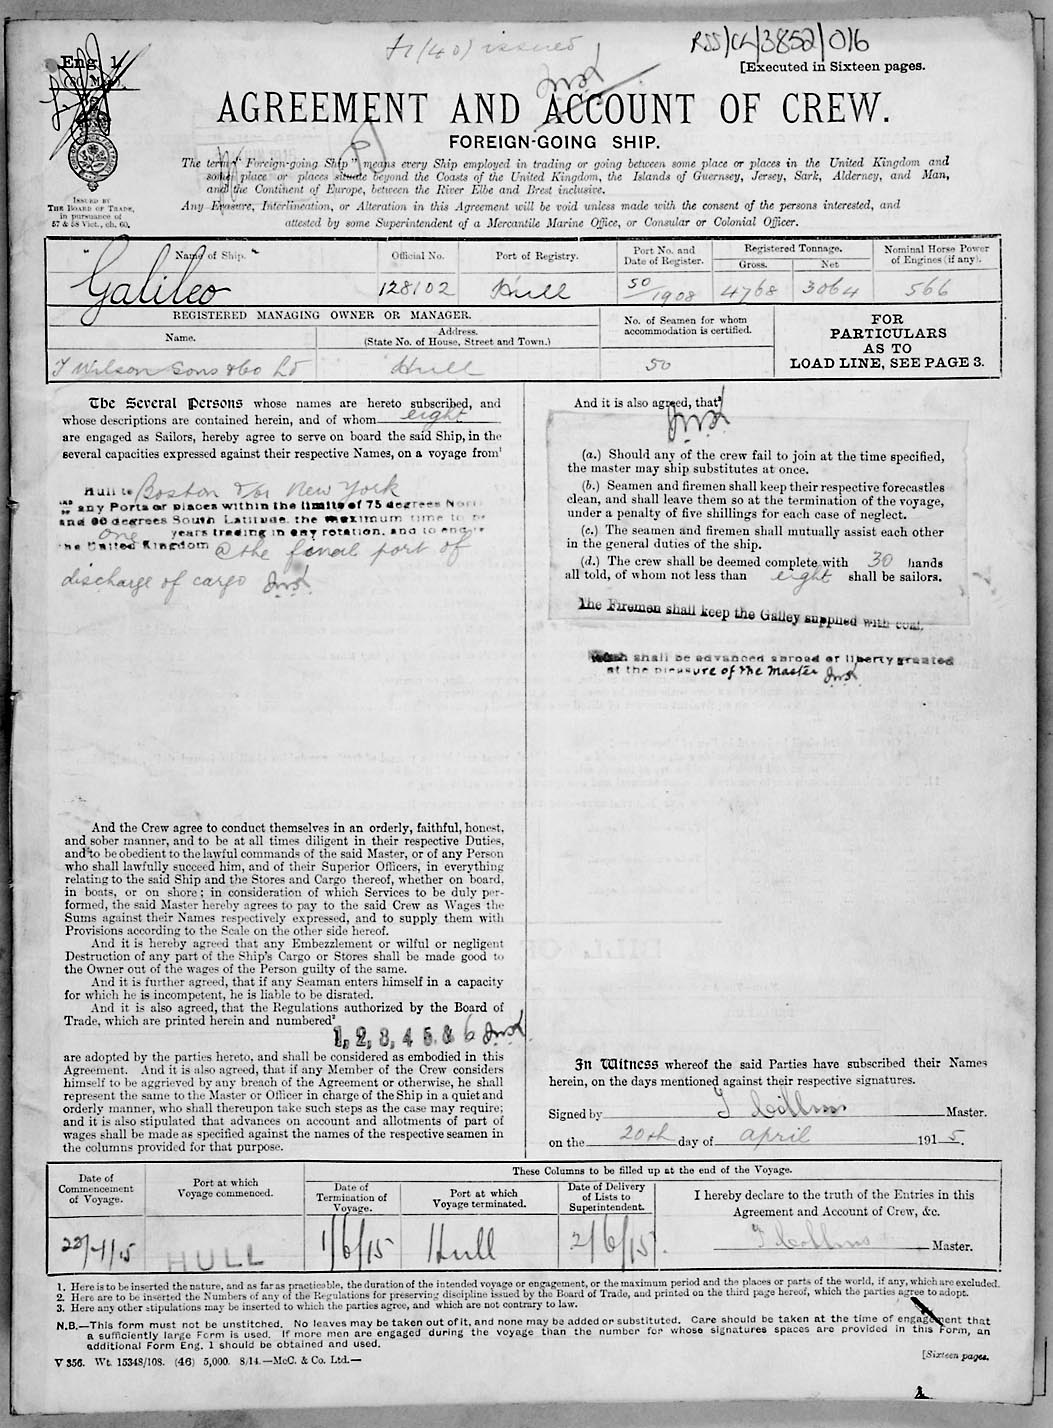 H1(40) issued
RSS/CL/3852/016
Eng. 1.
[Executed in Sixteen pages.
AGREEMENT AND ACCOUNT OF CREW.
FOREIGN-GOING SHIP.
The term "Foreign-going Ship" means every Ship employed in trading or going between some place or places in the United Kingdom and
some place or places situate beyond the Coasts of the United Kingdom, the Islands of Guernsey, Jersey, Sark, Alderney, and Man,
and the Continent of Europe, between the River Elbe and Brest inclusive.
Any Erasure, Interlineation, or Alteration in this Agreement will be void unless made with the consent of the persons interested, and
attested by some Superintendent of a Mercantile Marine Office, or Consular or Colonial Officer.
ISSUED BY
THE BOARD OF TRADE,
in pursuance of
57 & 58 Vict., ch. 60.
Name of Ship. Official No. Port of Registry. Port No. and Date of Register. Registered Tonnage. Gross. Net Nominal Horse Power of Engines (if any).
"Galileo" 128102 Hull 50/1908 4768 3064 566
REGISTERED MANAGING OWNER OR MANAGER.
Name. Address. (State No. of House, Street and Town.) No. of Seamen for whom accommodation is certified.
T Wilson Sons & Co Ld Hull 50
FOR
PARTICULARS
AS TO
LOAD LINE, SEE PAGE 3.
The Several Persons whose names are hereto subscribed, and
whose descriptions are contained herein, and of whom eight
are engaged as Sailors, hereby agree to serve on board the said Ship, in the
several capacities expressed against their respective Names, on a voyage from¹
Hull to Boston &/or New York
any Ports or places within the limits of 75 degrees North
and 60 degrees South Latitude, the maximum time to be
one years trading in any rotation, and to end in
the United Kingdom @ the final port of
discharge of cargo
And the Crew agree to conduct themselves in an orderly, faithful, honest,
and sober manner, and to be at all times diligent in their respective Duties,
and to be obedient to the lawful commands of the said Master, or of any Person
who shall lawfully succeed him, and of their Superior Officers, in everything
relating to the said Ship and the Stores and Cargo thereof, whether on board,
in boats, or on shore; in consideration of which Services to be duly per-
formed, the said Master hereby agrees to pay to the said Crew as Wages the
Sums against their Names respectively expressed, and to supply them with
Provisions according to the Scale on the other side hereof.
And it is hereby agreed that any Embezzlement or wilful or negligent
Destruction of any part of the Ship's Cargo or Stores shall be made good to
the Owner out of the wages of the Person guilty of the same.
And it is further agreed, that if any Seaman enters himself in a capacity
for which he is incompetent, he is liable to be disrated.
And it is also agreed, that the Regulations authorized by the Board of
Trade, which are printed herein and numbered²
1, 2, 3, 4 5. & 6
are adopted by the parties hereto, and shall be considered as embodied in this
Agreement. And it is also agreed, that if any Member of the Crew considers
himself to be aggrieved by any breach of the Agreement or otherwise, he shall
represent the same to the Master or Officer in charge of the Ship in a quiet and
orderly manner, who shall thereupon take such steps as the case may require;
and it is also stipulated that advances on account and allotments of part of
wages shall be made as specified against the names of the respective seamen in
the columns provided for that purpose.
And it is also agreed, that³
(a.) Should any of the crew fail to join at the time specified,
the master may ship substitutes at once.
(b.) Seamen and firemen shall keep their respective forecastles
clean, and shall leave them so at the termination of the voyage,
under a penalty of five shillings for each case of neglect.
(c.) The seamen and firemen shall mutually assist each other
in the general duties of the ship.
(d.) The crew shall be deemed complete with 30 hands
all told, of whom not less than eight shall be sailors.
The Firemen shall keep the Galley supplied with coal.
shall be advanced abroad or liberty granted
at the pleasure of the Master
In Witness whereof the said Parties have subscribed their Names
herein, on the days mentioned against their respective signatures.
Signed by T Collins Master.
on the 20th day of April 1915.
Date of Commencement of Voyage. Port at which Voyage commenced. These Columns to be filled up at the end of the Voyage.
Date of Termination of Voyage. Port at which Voyage terminated. Date of Delivery of Lists to Superintendent. I hereby declare to the truth of the Entries in this
Agreement and Account of Crew, &c.
HULL 1/6/15 Hull 2/6/15 T Collins Master.
1. Here is to be inserted the nature, and as far as practicable, the duration of the intended voyage or engagement, or the maximum period and the places or parts of the world, if any, which are excluded.
2. Here are to be inserted the Numbers of any of the Regulations for preserving discipline issued by the Board of Trade, and printed on the third page hereof, which the parties agree to adopt.
3. Here any other stipulations may be inserted to which the parties agree, and which are not contrary to law.
N.B.—This form must not be unstitched. No leaves may be taken out of it, and none may be added or substituted. Care should be taken at the time of engagement that
a sufficiently large Form is used. If more men are engaged during the voyage than the number for whose signatures spaces are provided in this Form, an
additional Form Eng. 1 should be obtained and used.
V 356. Wt. 15348/108. (46) 5,000. 8/14.—McC. & Co. Ltd.—
[Sixteen pages.